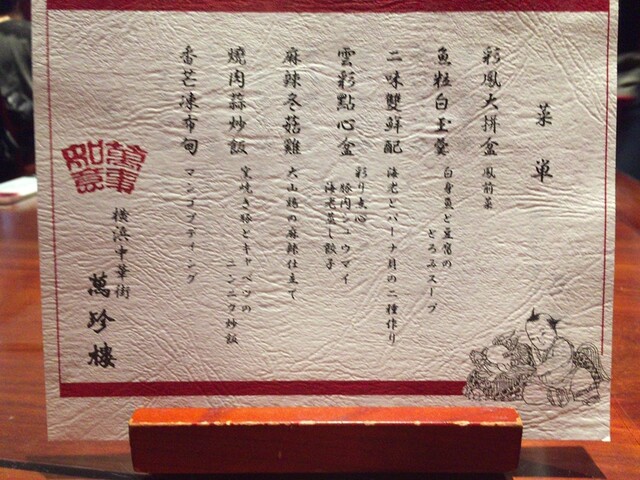 菜単
彩鳳大拼盆 鳳前菜
魚粒白玉羹 白身魚と豆腐の
とろみスープ
二味雙鮮配 海老とバーナ貝の二種作り
雲彩點心盒 彩り点心
豚肉シュウマイ
海老蒸し餃子
麻辣冬菇雞 大山鶏の麻辣仕立て
燒肉蒜炒飯 窯焼き豚とキャベツの
ニンニク炒飯
香芒凍布甸 マンゴプディング
萬事如意
横浜中華街
萬珍樓